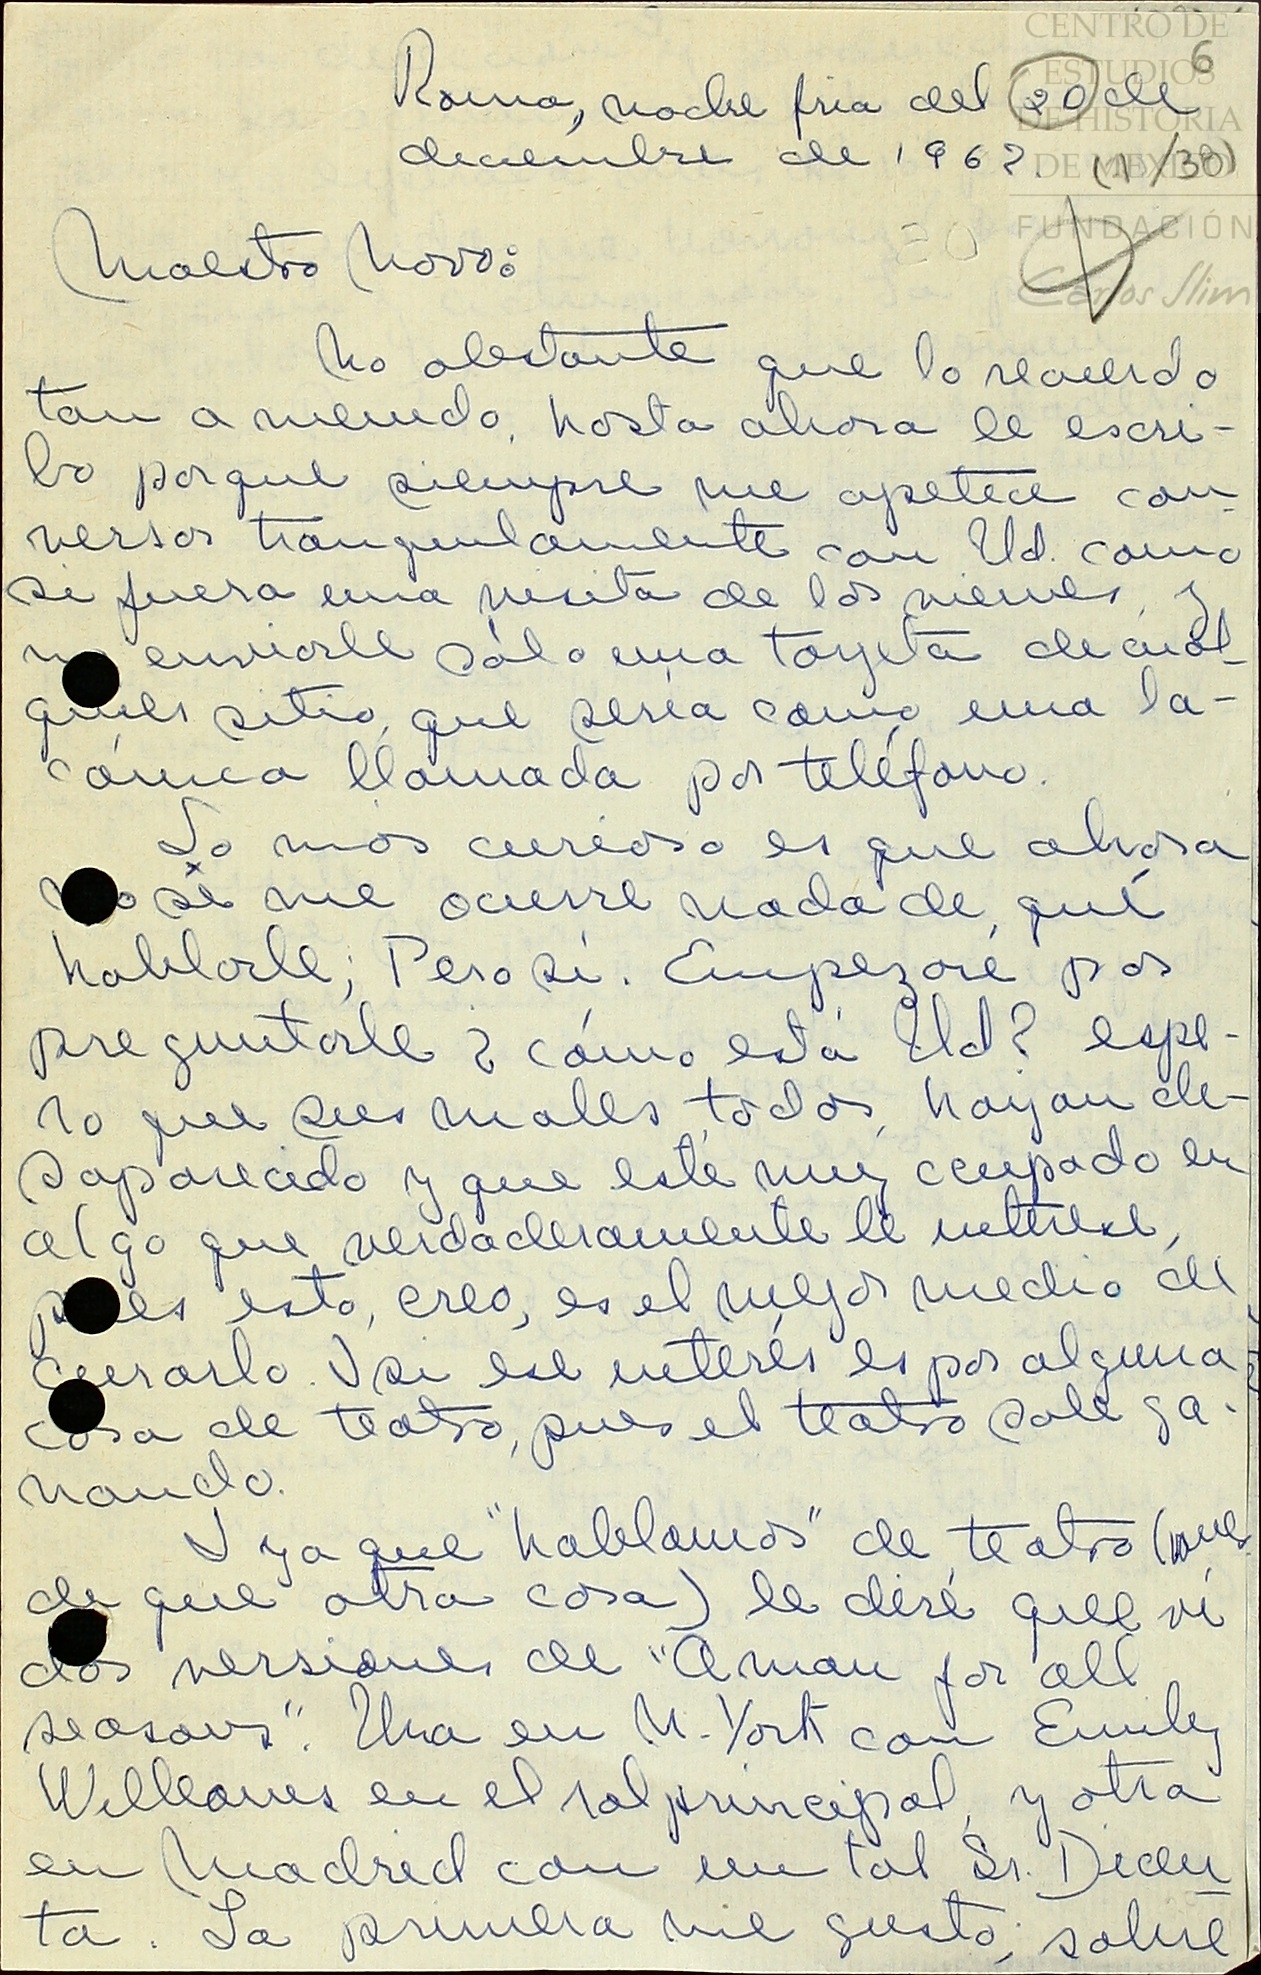 CENTRO DE
ESTUDIOS
DE HISTORIA
DE MEXICO
FUNDACIÓN
Carlos Slim
6
Roma, noche fria del 20 de
diciembre de 1962.
(1/30)
20
Maestro Novo:
No obstante que lo recuerdo
tan a menudo, hasta ahora le escri-
bo porque siempre me apetece con-
versar tranquilamente con Ud. como
si fuera una visita de los viernes, y
no enviarle sólo una tarjeta de cual-
quier sitio, que sería como una la-
cónica llamada por teléfono.
Lo más curioso es que ahora
no se me ocurre nada de qué
hablarle; Pero sí. Empezaré por
preguntarle ¿cómo está Ud? espe-
ro que sus males, todos, hayan de-
saparecido y que esté muy ocupado en
algo que verdaderamente le interese,
pues esto, creo, es el mejor medio de
curarlo. Y si ese interés es por alguna
cosa de teatro, pues el teatro sale ga-
nando.
Y ya que "hablamos" de teatro (pues
de que otra cosa) le diré que vi
dos versiones de "A man for all
seasons". Una en N. York con Emily
Williams en el rol principal, y otra
en Madrid con un tal Sr. Dicen
ta. La primera me gusto, sobre